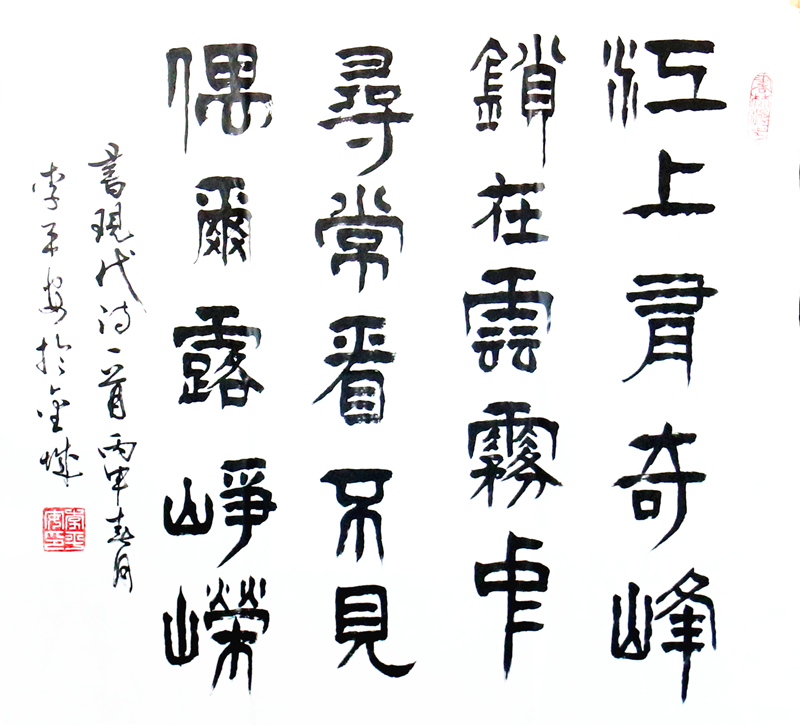 江上有奇峰
鎖在雲霧中
尋常看不見
偶爾露崢嶸
書現代诗一首丙申春月
李平安於金城